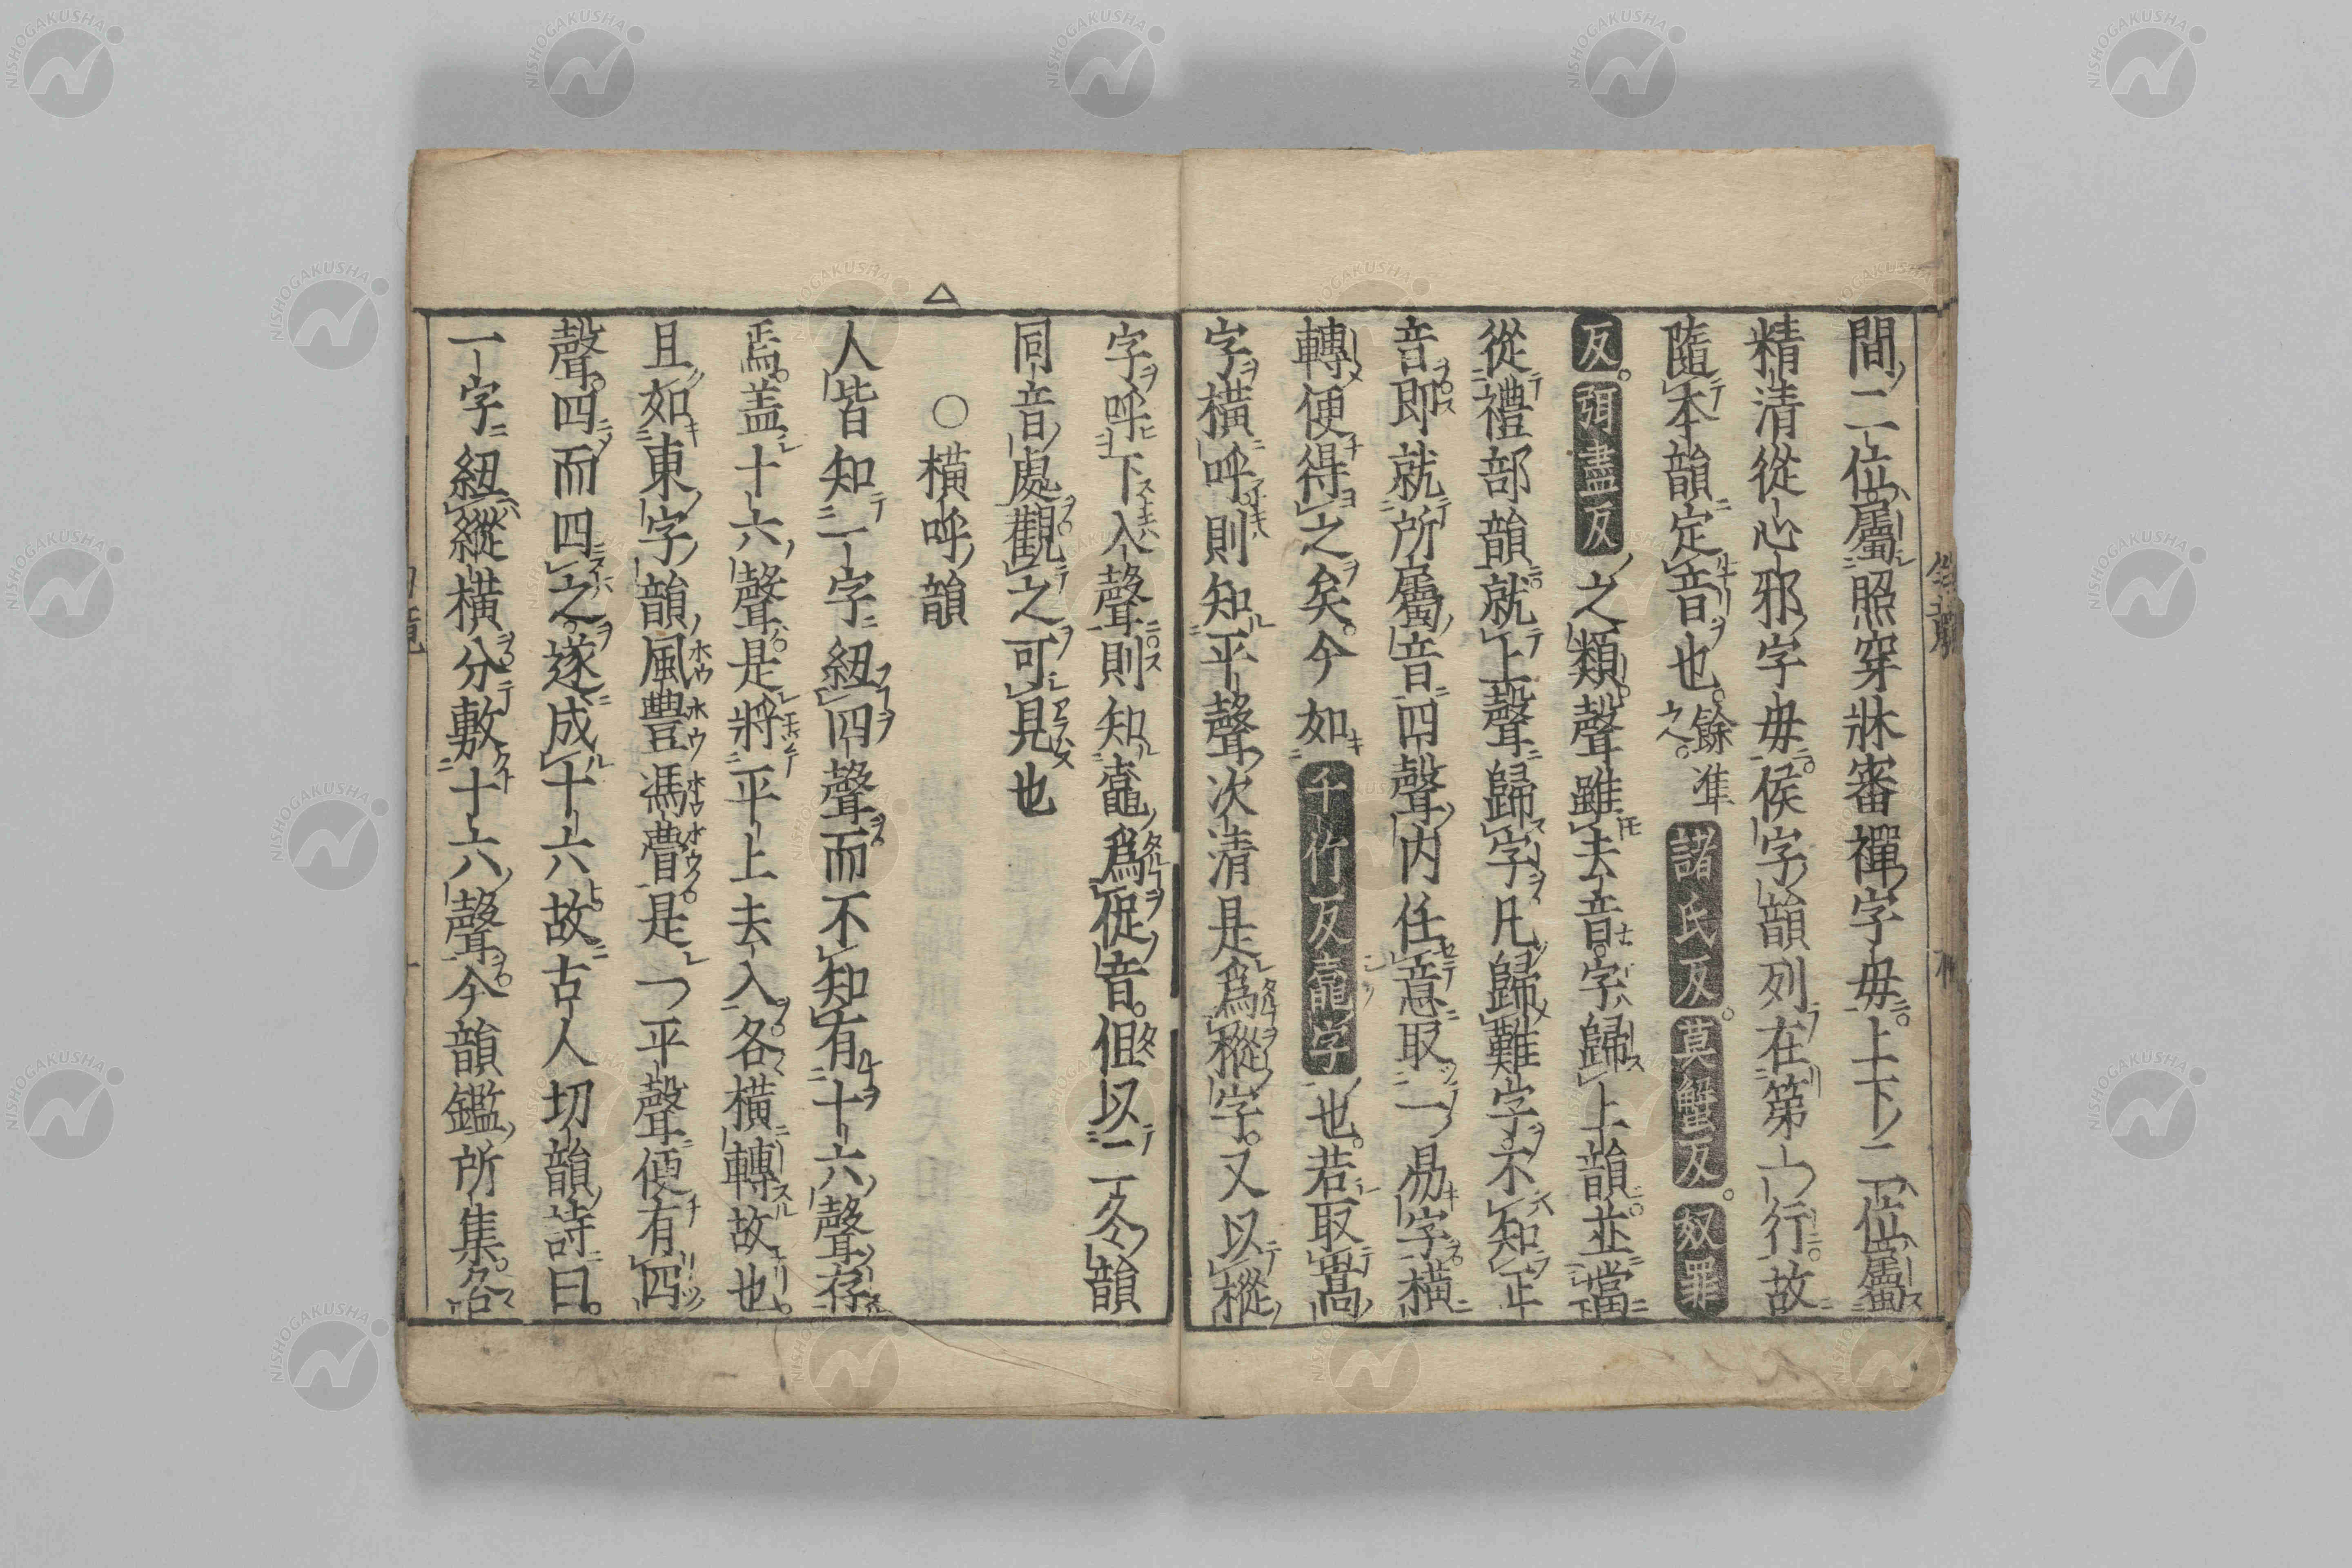 間二位屬照穿牀審禪字毋上下二位屬
精清從心邪字毋侯字韻列在第一行故
隨本韻定音也餘準之諸氏反莫蟹反奴罪
反弭盡反之類聲雖去音字歸上韻並當
從禮部韻就上聲歸字凡歸難字不知正
音即就所屬音四聲內任意取一易字橫
轉便得之矣今如千竹反鼀字也若取嵩
字橫呼則知平聲次清是為樅字又以樅
字呼下入聲則知鼀為促音但以二冬韻
同音處觀之可見也
○橫呼韻
人皆知一字紐四聲而不知有十六聲存
焉盖十六聲是將平上去入各橫轉故也
且如東字韻風豐馮瞢是一平聲便有四
聲四而四之遂成十六故古人切韻詩曰
一字紐縱橫分敷十六聲今韻鑑所集各